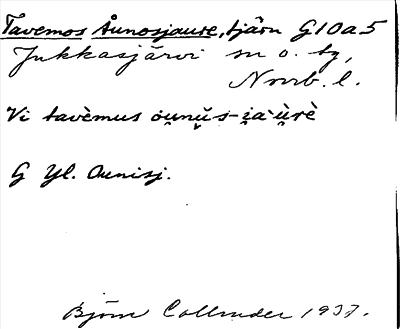 Tavemos Åunosjaure, tjärn G10a5
Jukkasjärvi sn o. tg,
Norrb. l.
Vi tavèmus ou̯nŭ̯s-i̯a`ù̯rè
G Yl. Ounisj.
Björn Collinder 1937.